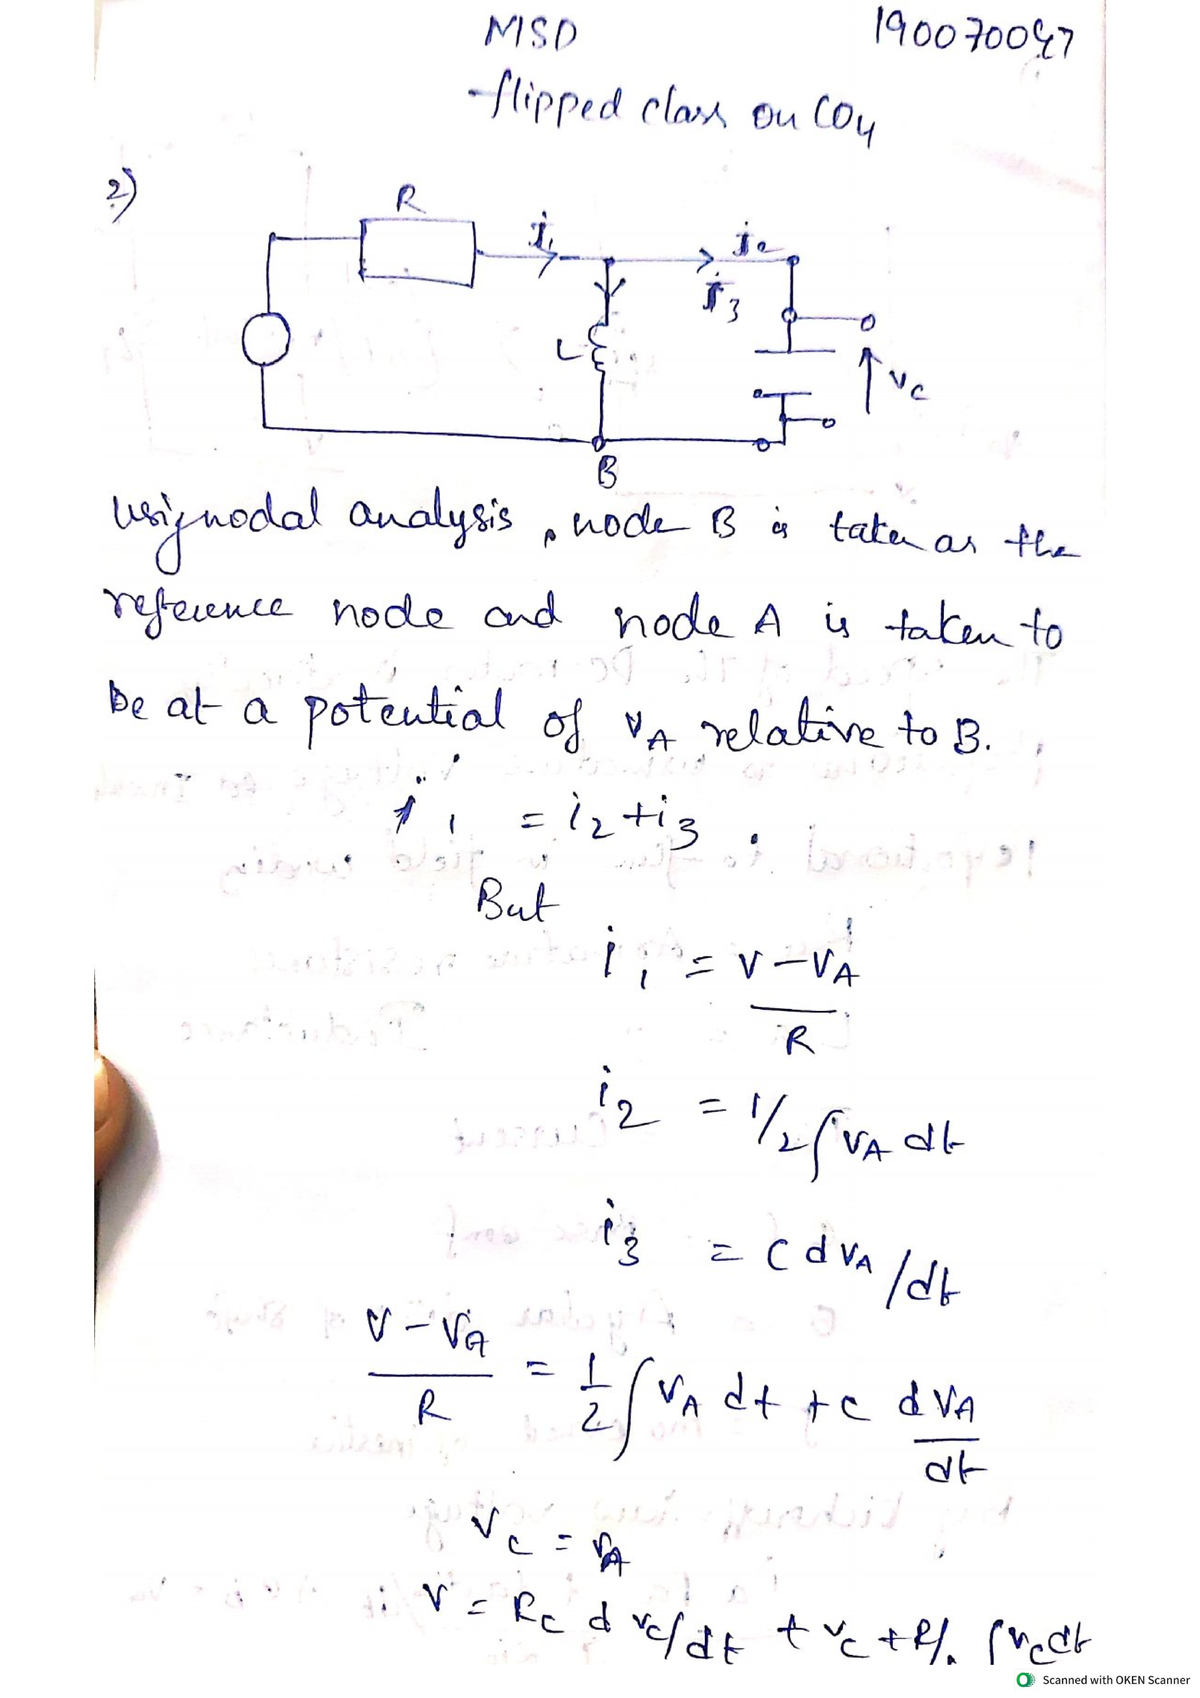 MSD 19007004
-flipped class on CO4
2)
R
i1
i2
i3
L
vc
B
Usignodal analysis, node B is taken as the
reference node and node A is taken to
be at a potential of vA relative to B.
i1 = i2+i3
But
i1 = v-vA
R
i2 = 1/2 ∫vA dt
i3 = C dvA/dt
v-vA
R
= 1/2 ∫vA dt + c dvA
dt
vc = vA
v = Rc d vc/dt + vc + R/ ∫vcdt
Scanned with OKEN Scanner